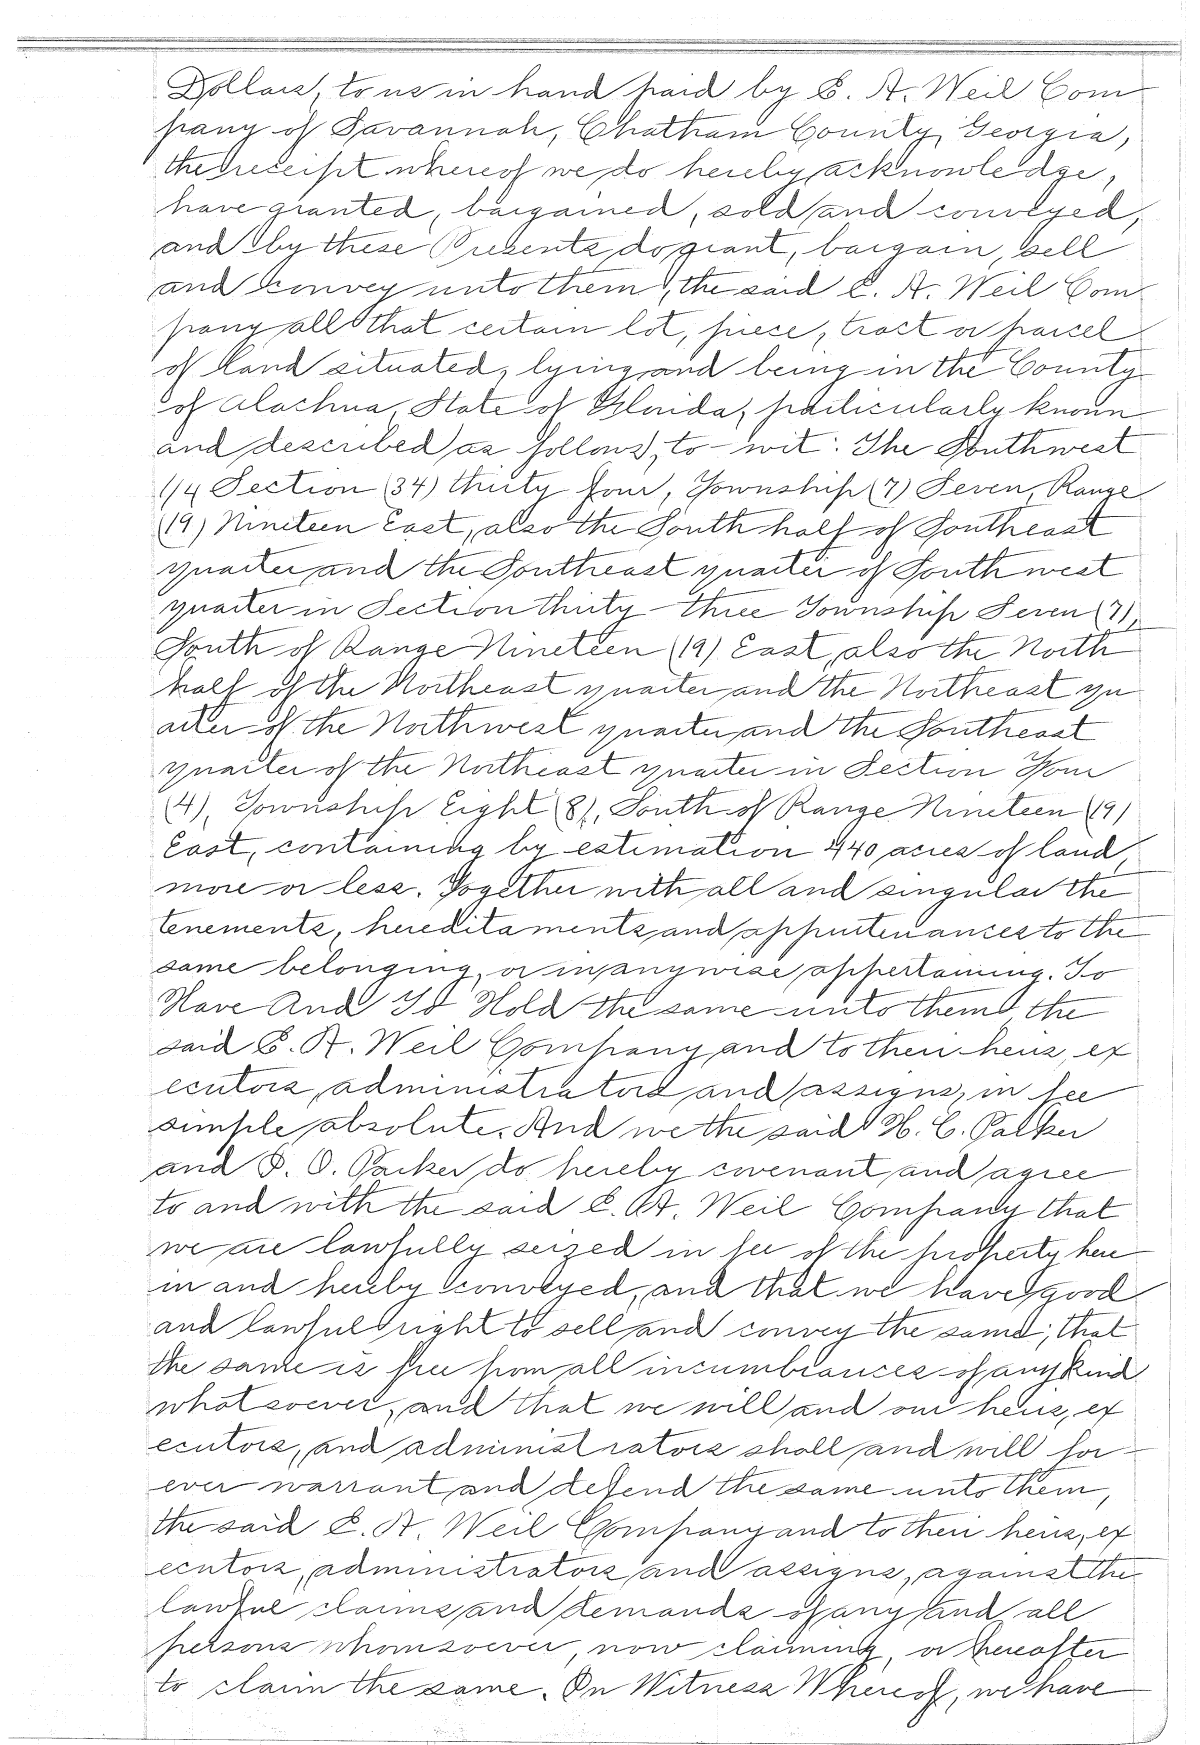 Dollars, to us in hand paid by E. A. Weil Com
pany of Savannah, Chatham County, Georgia,
the receipt whereof we do hereby acknowledge,
have granted, bargained, sold and conveyed,
and by these Presents do grant, bargain, sell
and convey unto them, the said E. A. Weil Com
pany all that certain lot, piece, tract or parcel
of land situated, lying and being in the County
of Alachua, State of Florida, particularly known
and described as follows, to-wit: The Southwest
1/4 Section (34) thirty four, Township (7) Seven, Range
(19) Nineteen East, also the South half of Southeast
quarter and the Southeast quarter of Southwest
quarter in Section thirty-three Township Seven (7),
South of Range Nineteen (19) East, also the North
half of the Northeast quarter and the Northeast qu
arter of the Northwest quarter and the Southeast
quarter of the Northeast quarter in Section Four
(4), Township Eight (8), South of Range Nineteen (19)
East, containing by estimation 440 acres of land,
more or less. Together with all and singular the
tenements, hereditaments and appurtenances to the
same belonging, or in anywise appertaining. To
Have And To Hold the same unto them, the
said E. A. Weil Company and to their heirs, ex
ecutors, administrators and assigns, in fee
simple absolute. And we the said H. C. Parker
and P. O. Parker do hereby covenant and agree
to and with the said E. A. Weil Company that
we are lawfully seized in fee of the property here
in and hereby conveyed, and that we have good
and lawful right to sell and convey the same; that
the same is free from all incumbrances of any kind
whatsoever, and that we will and our heirs, ex
ecutors, and administrators shall and will for-
ever warrant and defend the same unto them,
the said E. A. Weil Company and to their heirs, ex
ecutors, administrators and assigns, against the
lawful claims and demands of any and all
persons whomsoever, now claiming, or hereafter
to claim the same. In Witness Whereof, we have